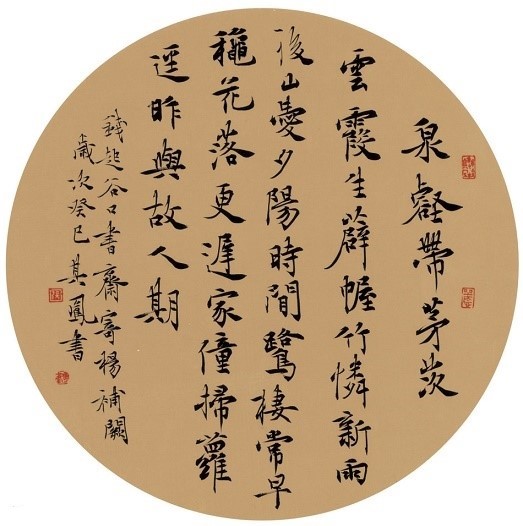 泉壑帶茅茨
雲霞生薜幄竹憐新雨
後山愛夕陽時間鷺棲常早
穐花落更遲家僮掃蘿
逕昨與故人期
錢起谷口書齋寄楊補闕
歲次癸巳其鳳書